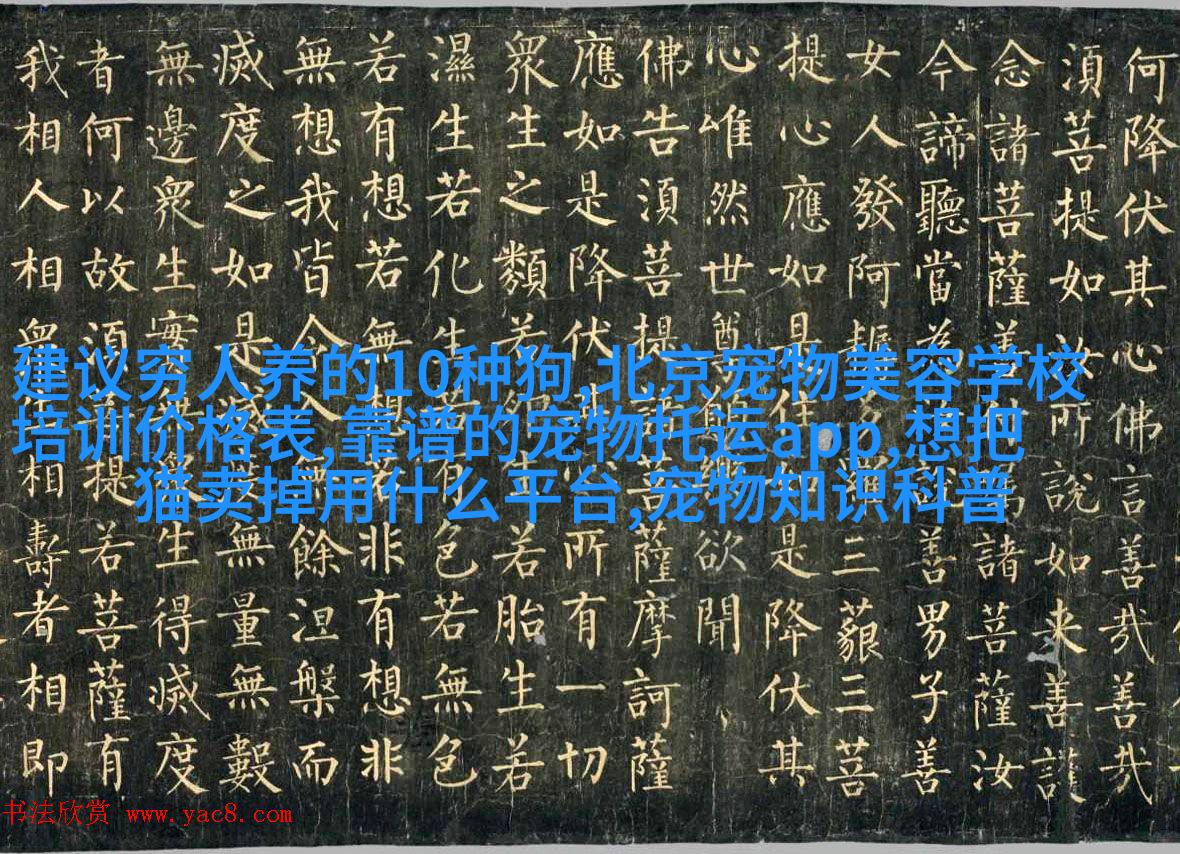 何降伏其心佛言善哉善哉
須菩提如汝所說如来善護
念諸菩薩善付囑諸菩薩汝
今諦聽當為汝說善男子善
女人發阿耨多羅三藐三菩
提心應如是住如是降伏其
心唯然世尊願樂欲聞
佛告須菩提諸菩薩摩訶薩
應如是降伏其心所有一切
衆生之類若卵生若胎生若
濕生若化生若有色若無色
若有想若無想若非有想非
無想我皆令入無餘涅槃而
滅度之如是滅度無量無數
無邊衆生實無衆生得滅度
者何以故須菩提若菩薩有
我相人相衆生相壽者相即
建议穷人养的10种狗,北京宠物美容学校
培训价格表,靠谱的宠物托运app,想把
猫卖掉用什么平台,宠物知识科普
书法欣赏 www.yac8.com